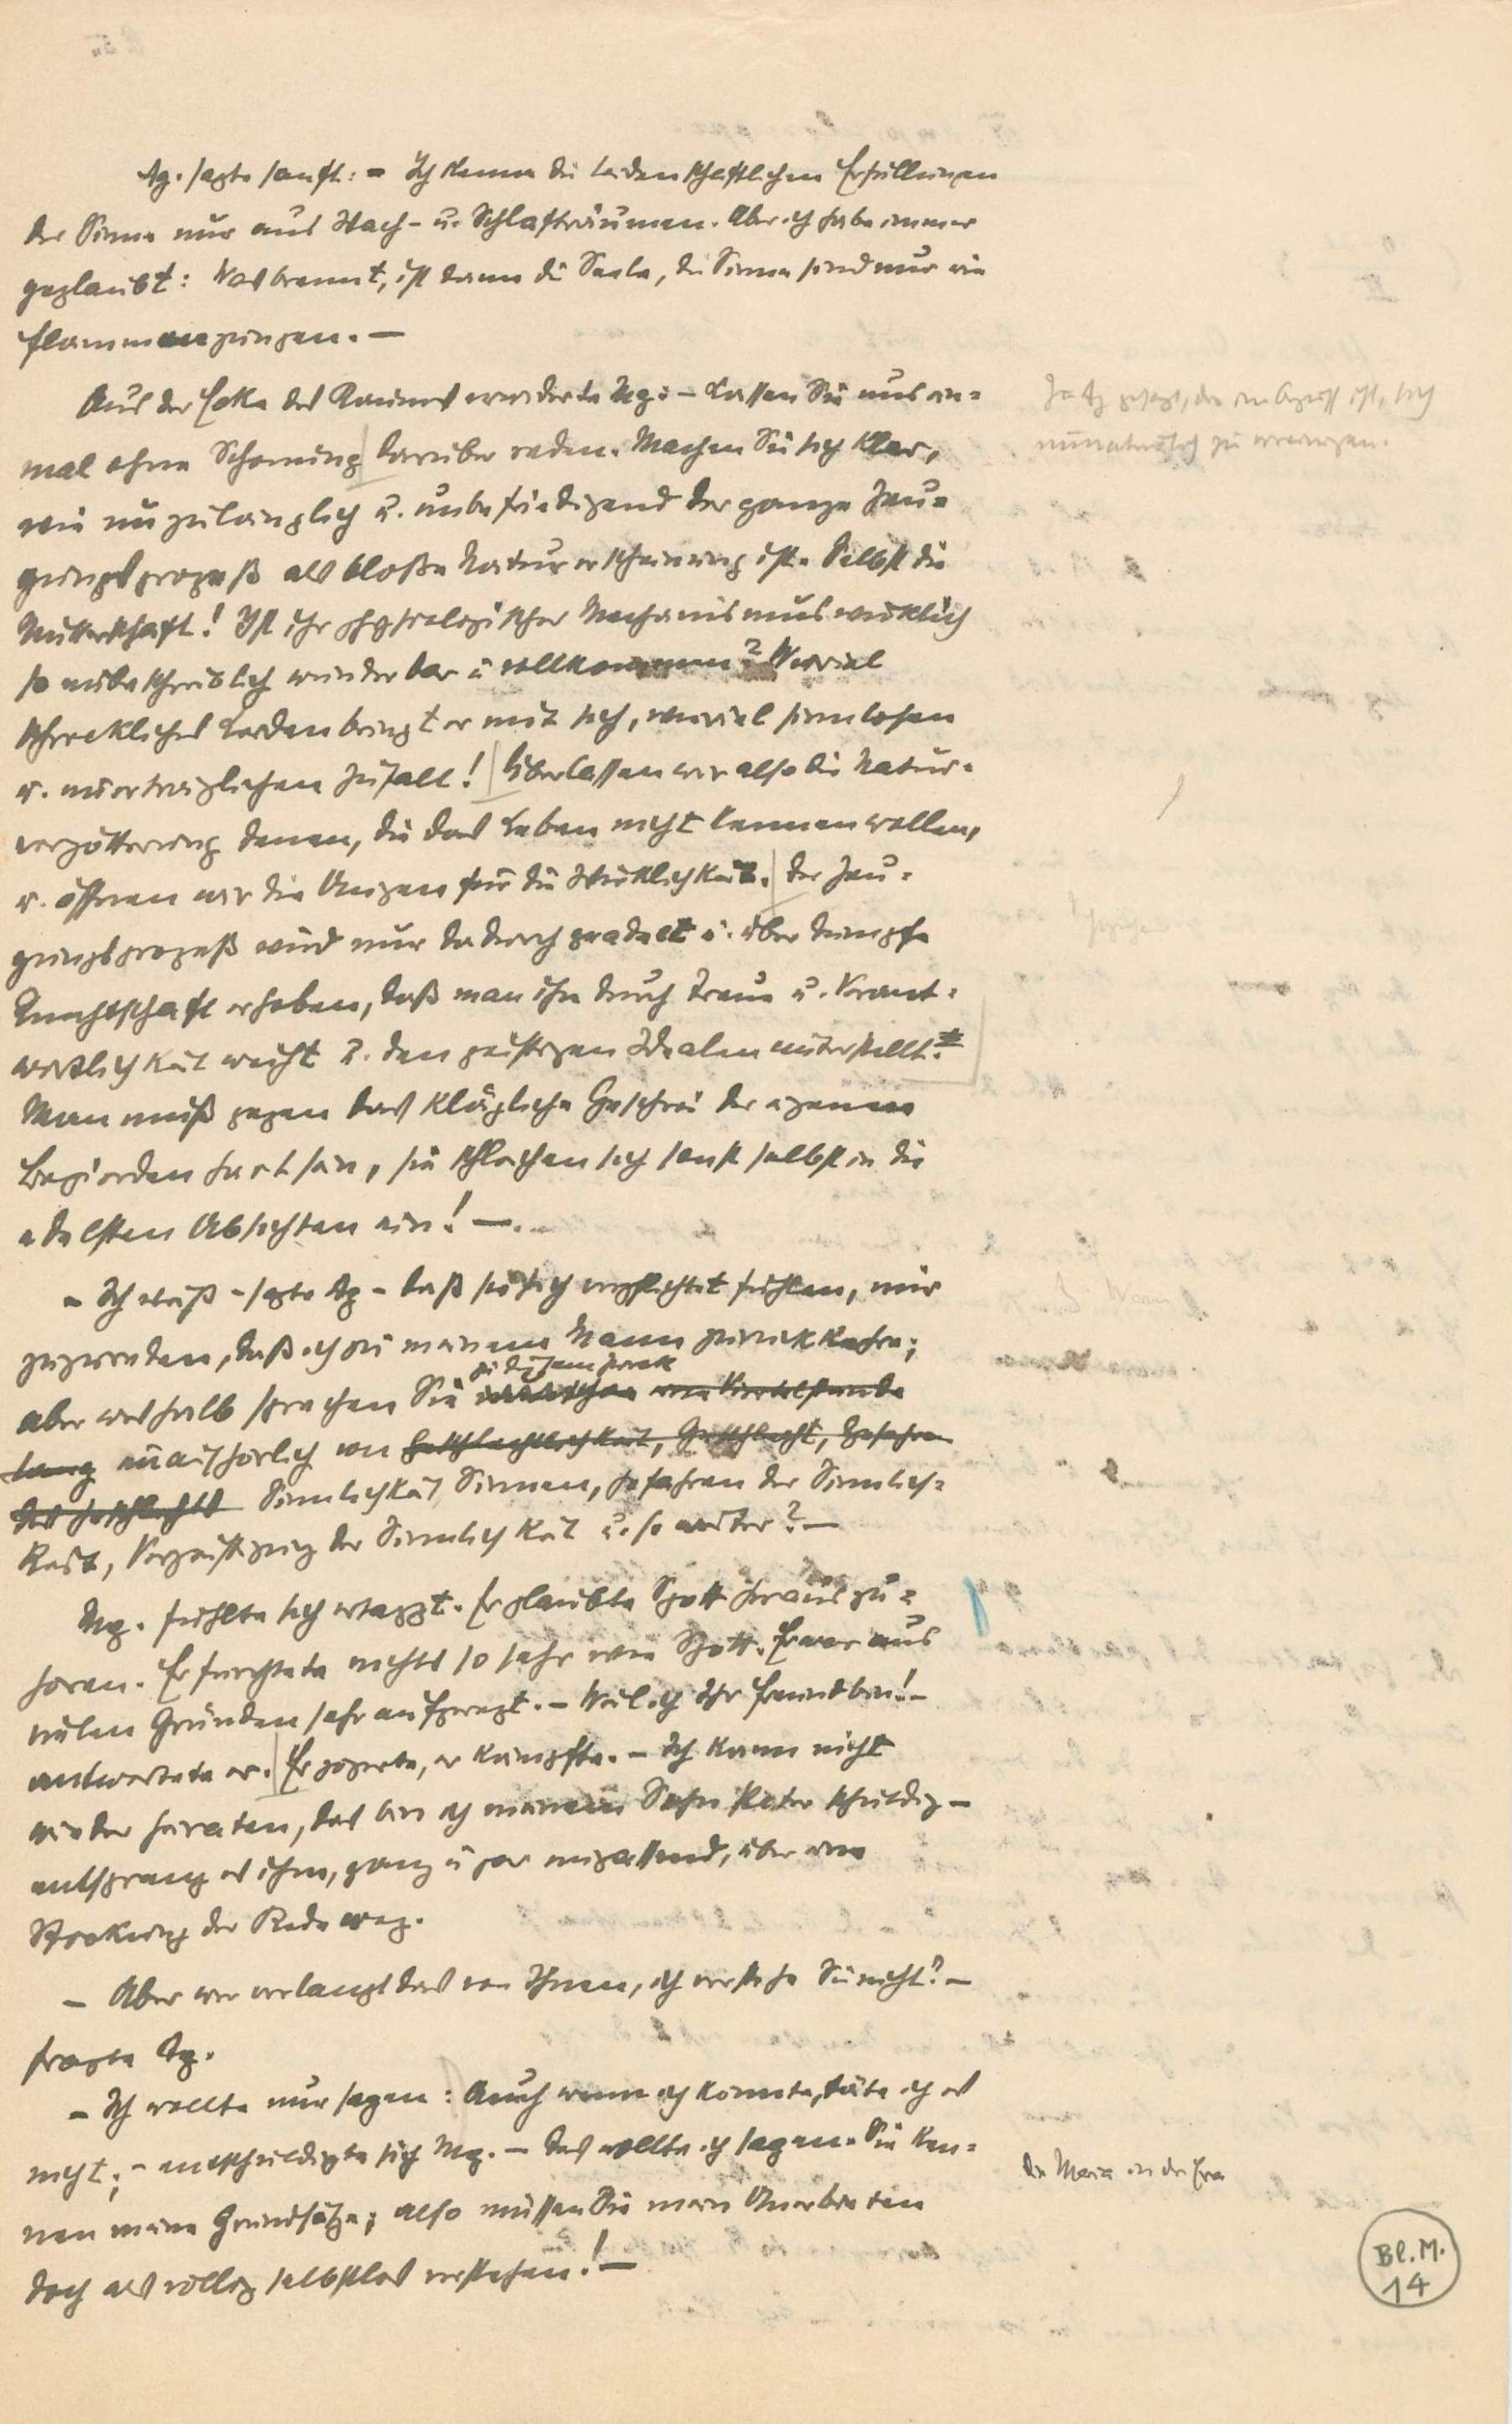 Ag. sagte sanft: – Ich kenne die leidenschaftlichen Erfüllungen
der Sinne nur aus Wach- u. Schlafträumen. Aber ich habe immer
geglaubt: Was brennt, ist dann die Seele, die Sinne sind nur wie
Flammenzungen. –
Aus der Ecke des Raumes erwiderte Mg: – Lassen Sie uns ein=
mal ohne Schonung darüber reden. Machen Sie sich klar,
wie unzulänglich u. unbefriedigend der ganze Zeu=
gungsprozeß als bloße Naturerscheinung ist. Selbst die
Mutterschaft! Ist ihr physiologischer Mechanismus wirklich
so unbeschreiblich wunderbar u vollkommen? Wieviel
schreckliches Leiden bringt er mit sich, wieviel sinnlosen
u. unerträglichen Zufall! Überlassen wir also die Natur=
vergötterung denen, die das Leben nicht kennen wollen,
u. öffnen wir die Augen für die Wirklichkeit. Der Zeu=
gungsprozeß wird nur dadurch geadelt u. über dumpfe
Knechtschaft erhoben, daß man ihn durch Treue u. Verant=
wortlichkeit weiht u. den geistigen Idealen unterstellt.*
Man muß gegen das klägliche Geschrei der eigenen
Begierden hart sein, sie schleichen sich sonst selbst in die
edelsten Absichten ein! –.
– Ich weiß – sagte Ag – daß sie sich verpflichtet fühlen, mir
zuzureden, daß ich zu meinem Mann zurückkehre;
zu diesem Zweck
aber weshalb sprechen Sie eine Viertelstunde
lang unaufhörlich von Geschlechtlichkeit, Geschlecht, Gefahren
des Geschlechts Sinnlichkeit, Sinnen, Gefahren der Sinnlich=
keit, Vergeistigung der Sinnlichkeit u. so weiter? –
Mg. fühlte sich ertappt. Er glaubte Spott herauszu=
hören. Er fürchtete nichts so sehr wie Spott. Er war aus
vielen Gründen sehr aufgeregt. – Weil ich Ihr Freund bin! –
antwortete er. Er zögerte, er kämpfte. – Ich kann nicht
wieder heiraten, das bin ich meinem Sohn Peter schuldig –
entsprang es ihm, ganz u gar unpassend, über eine
Stockung der Rede weg.
– Aber wer verlangt das von Ihnen, ich verstehe Sie nicht? –
fragte Ag.
– Ich wollte nur sagen: Auch wenn ich könnte, täte ich es
nicht; – entschuldigte sich Mg. – Das wollte ich sagen. Sie ken=
nen meine Grundsätze; also müssen Sie mein Anerbieten
doch als völlig selbstlos verstehen! –
Die Maria in der Eva
Bl. M.
14